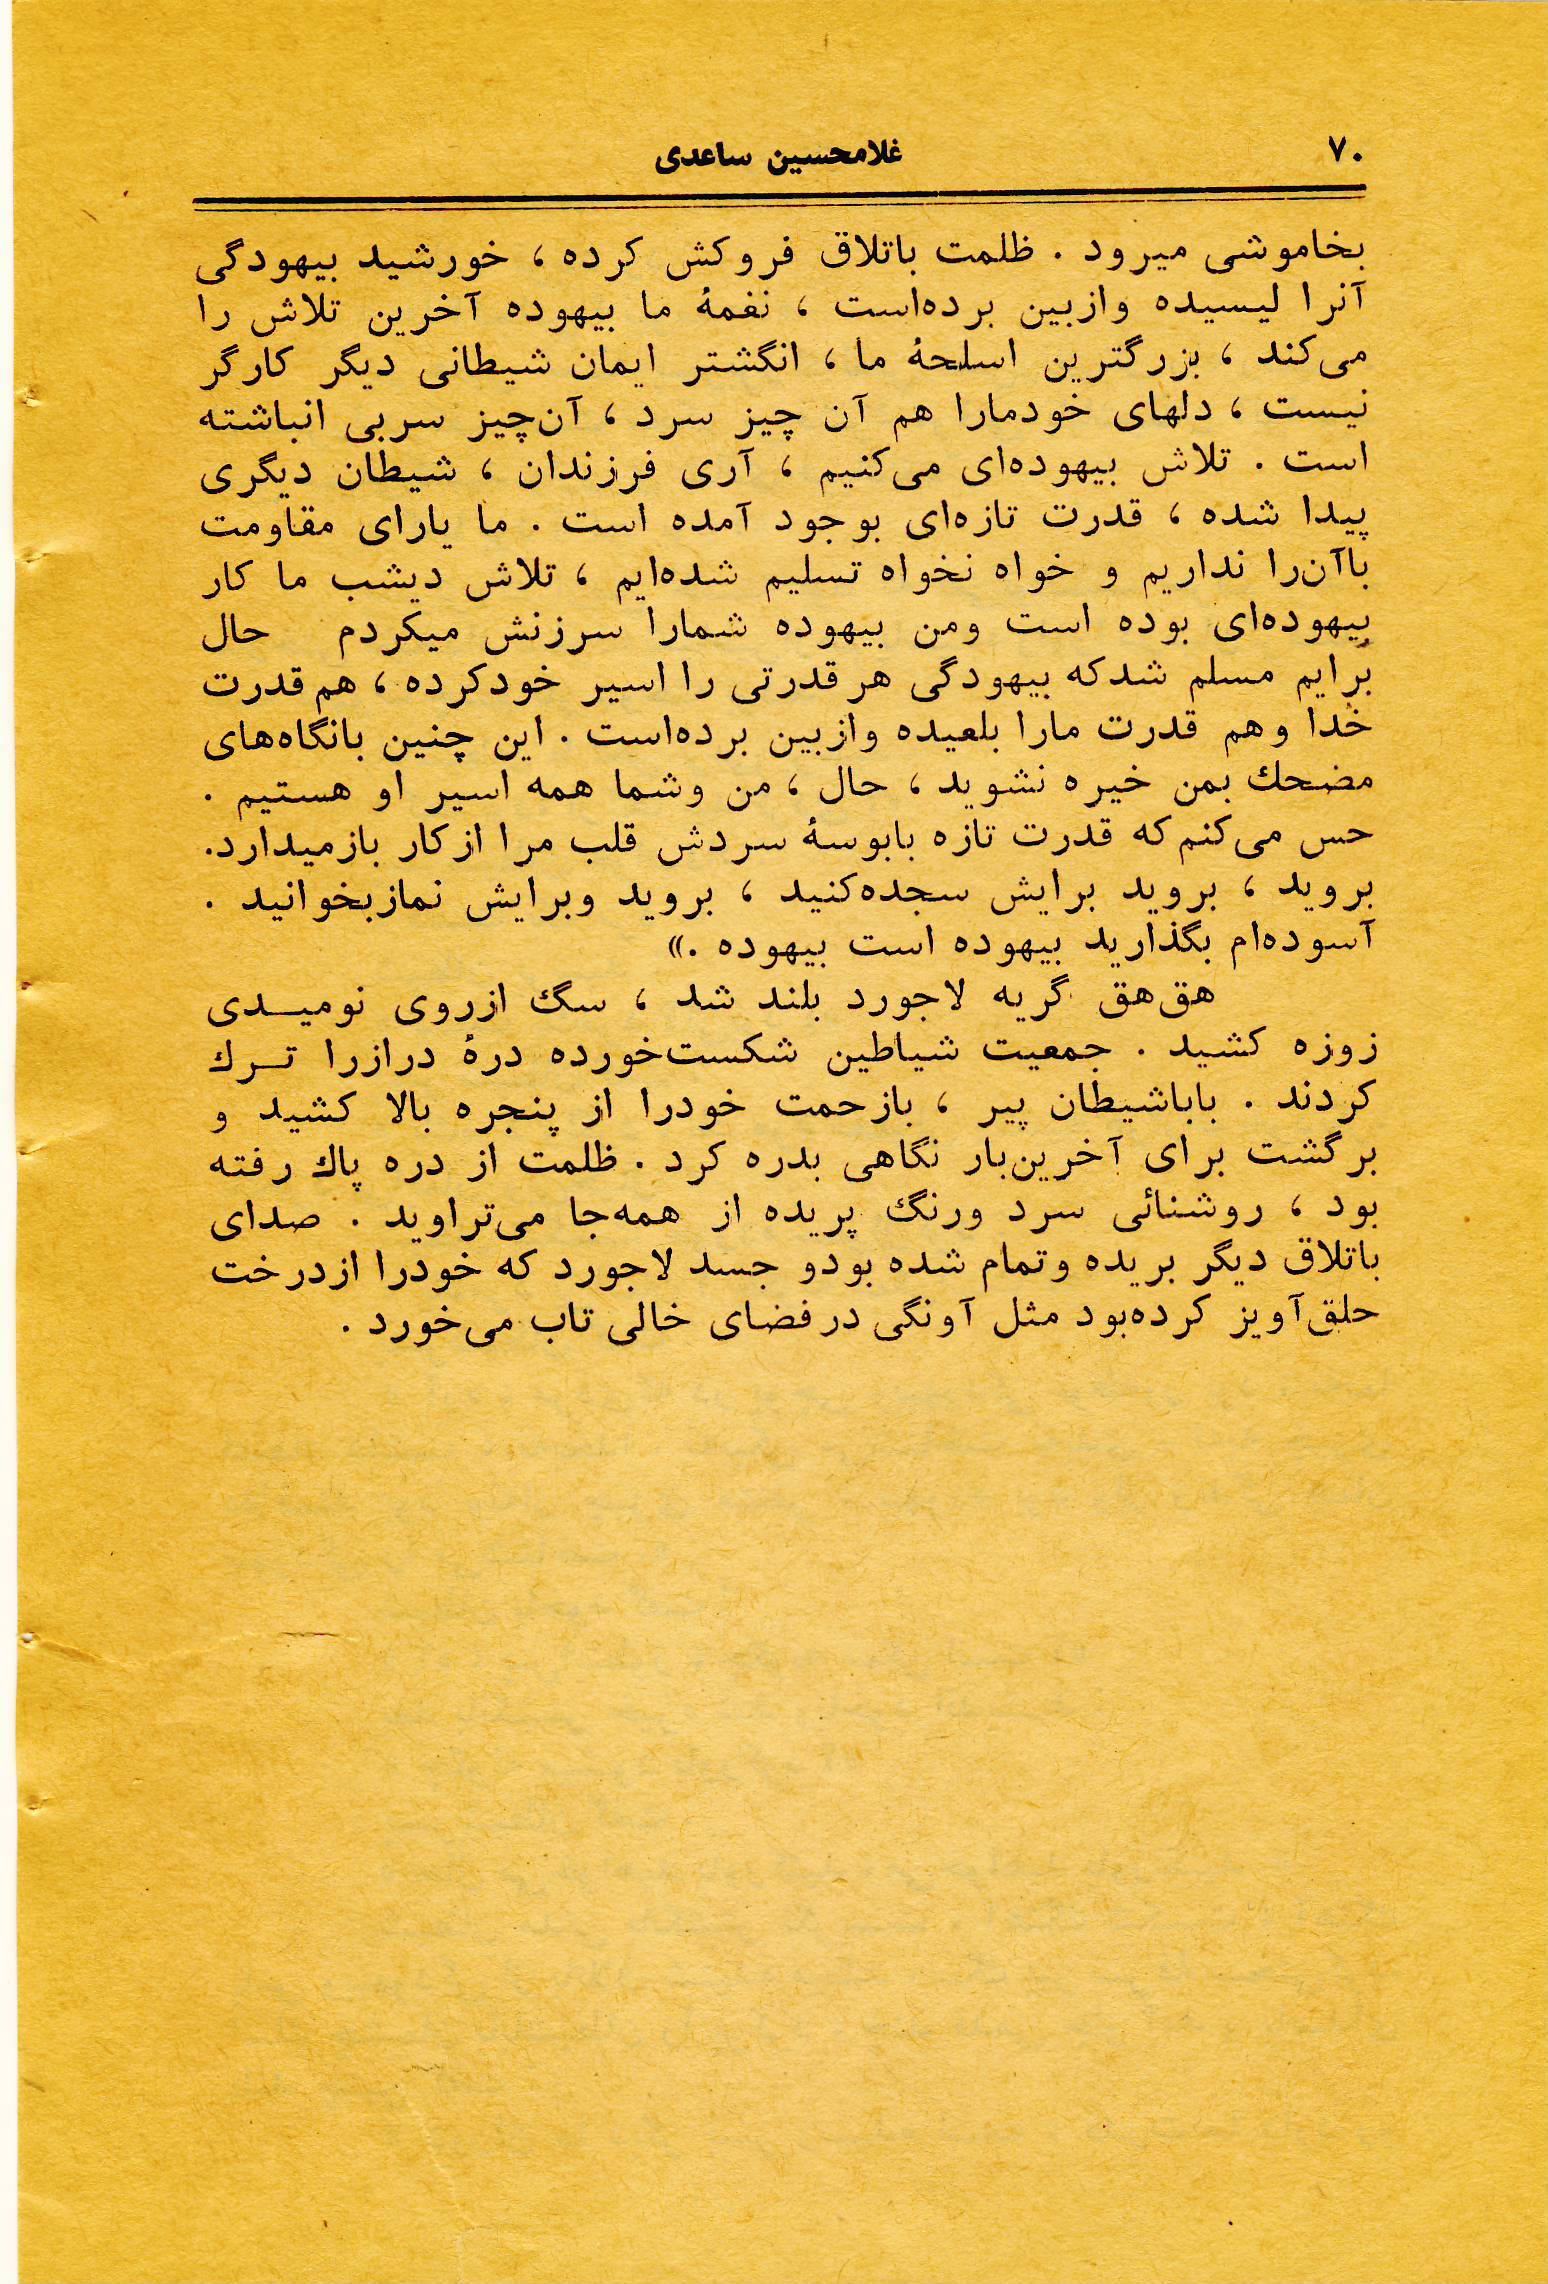 ۷۰
غلامحسین ساعدی
بخاموشی میرود . ظلمت باتلاق فروکش کرده ، خورشید بیهودگی
آنرا لیسیده وازبین برده‌است ، نغمهٔ ما بیهوده آخرین تلاش را
می‌کند ، بزرگترین اسلحهٔ ما ، انگشتر ایمان شیطانی دیگر کارگر
نیست ، دلهای خودمارا هم آن چیز سرد ، آن‌چیز سربی انباشته
است . تلاش بیهوده‌ای می‌کنیم ، آری فرزندان ، شیطان دیگری
پیدا شده ، قدرت تازه‌ای بوجود آمده است . ما یارای مقاومت
باآن‌را نداریم و خواه نخواه تسلیم شده‌ایم ، تلاش دیشب ما کار
بیهوده‌ای بوده است ومن بیهوده شمارا سرزنش میکردم حال
برایم مسلم شدکه بیهودگی هرقدرتی را اسیر خودکرده ، هم‌قدرت
خدا وهم قدرت مارا بلعیده وازبین برده‌است . این چنین بانگاه‌های
مضحك بمن خیره نشوید ، حال ، من وشما همه اسیر او هستیم .
حس می‌کنم‌که قدرت تازه بابوسهٔ سردش قلب مرا ازکار بازمیدارد.
بروید ، بروید برایش سجده‌کنید ، بروید وبرایش نمازبخوانید .
آسوده‌ام بگذارید بیهوده است بیهوده .»
هق‌هق گریه لاجورد بلند شد ، سگ ازروی نومیـدی
زوزه کشید . جمعیت شیاطین شکست‌خورده درهٔ درازرا تـرك
کردند . باباشیطان پیر ، بازحمت خودرا از پنجره بالا کشید و
برگشت برای آخرین‌بار نگاهی بدره کرد . ظلمت از دره پاك رفته
بود ، روشنائی سرد ورنگ پریده از همه‌جا می‌تراوید . صدای
باتلاق دیگر بریده وتمام شده بودو جسد لاجورد که خودرا ازدرخت
حلق‌آویز کرده‌بود مثل آونگی درفضای خالی تاب می‌خورد .